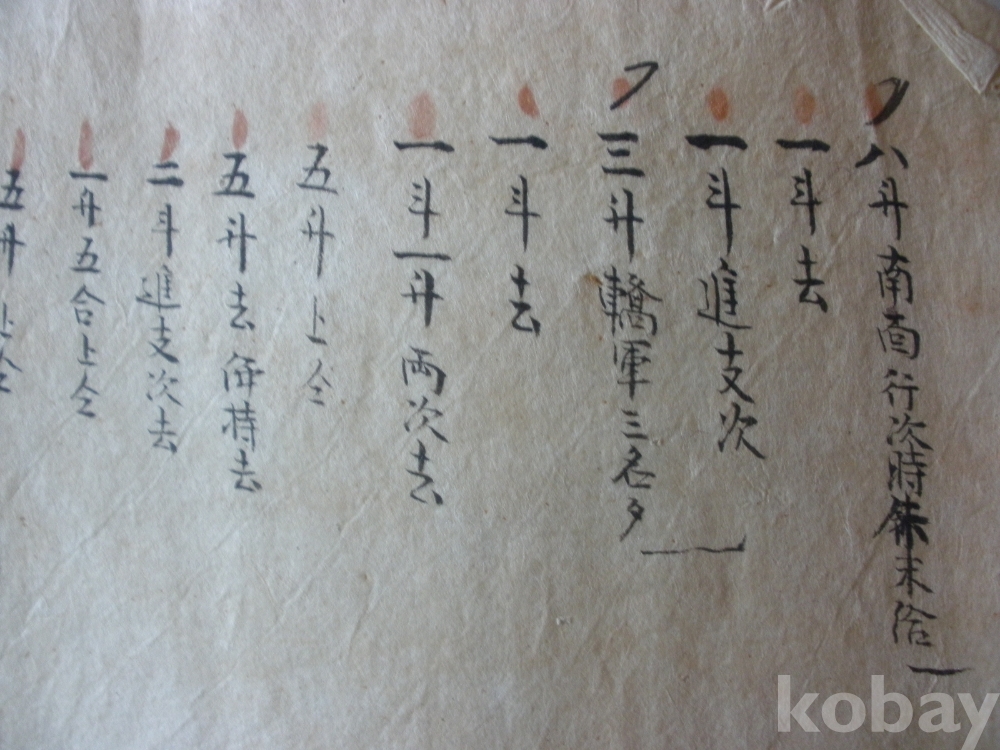 八升南面行次時 末给
一斗去
一斗進支次
三升轎軍三名夕
一斗去
一斗一升両次去
五升上仝
五斗去 持去
二斗進支次去
一升五合上仝
五升上仝
kobay